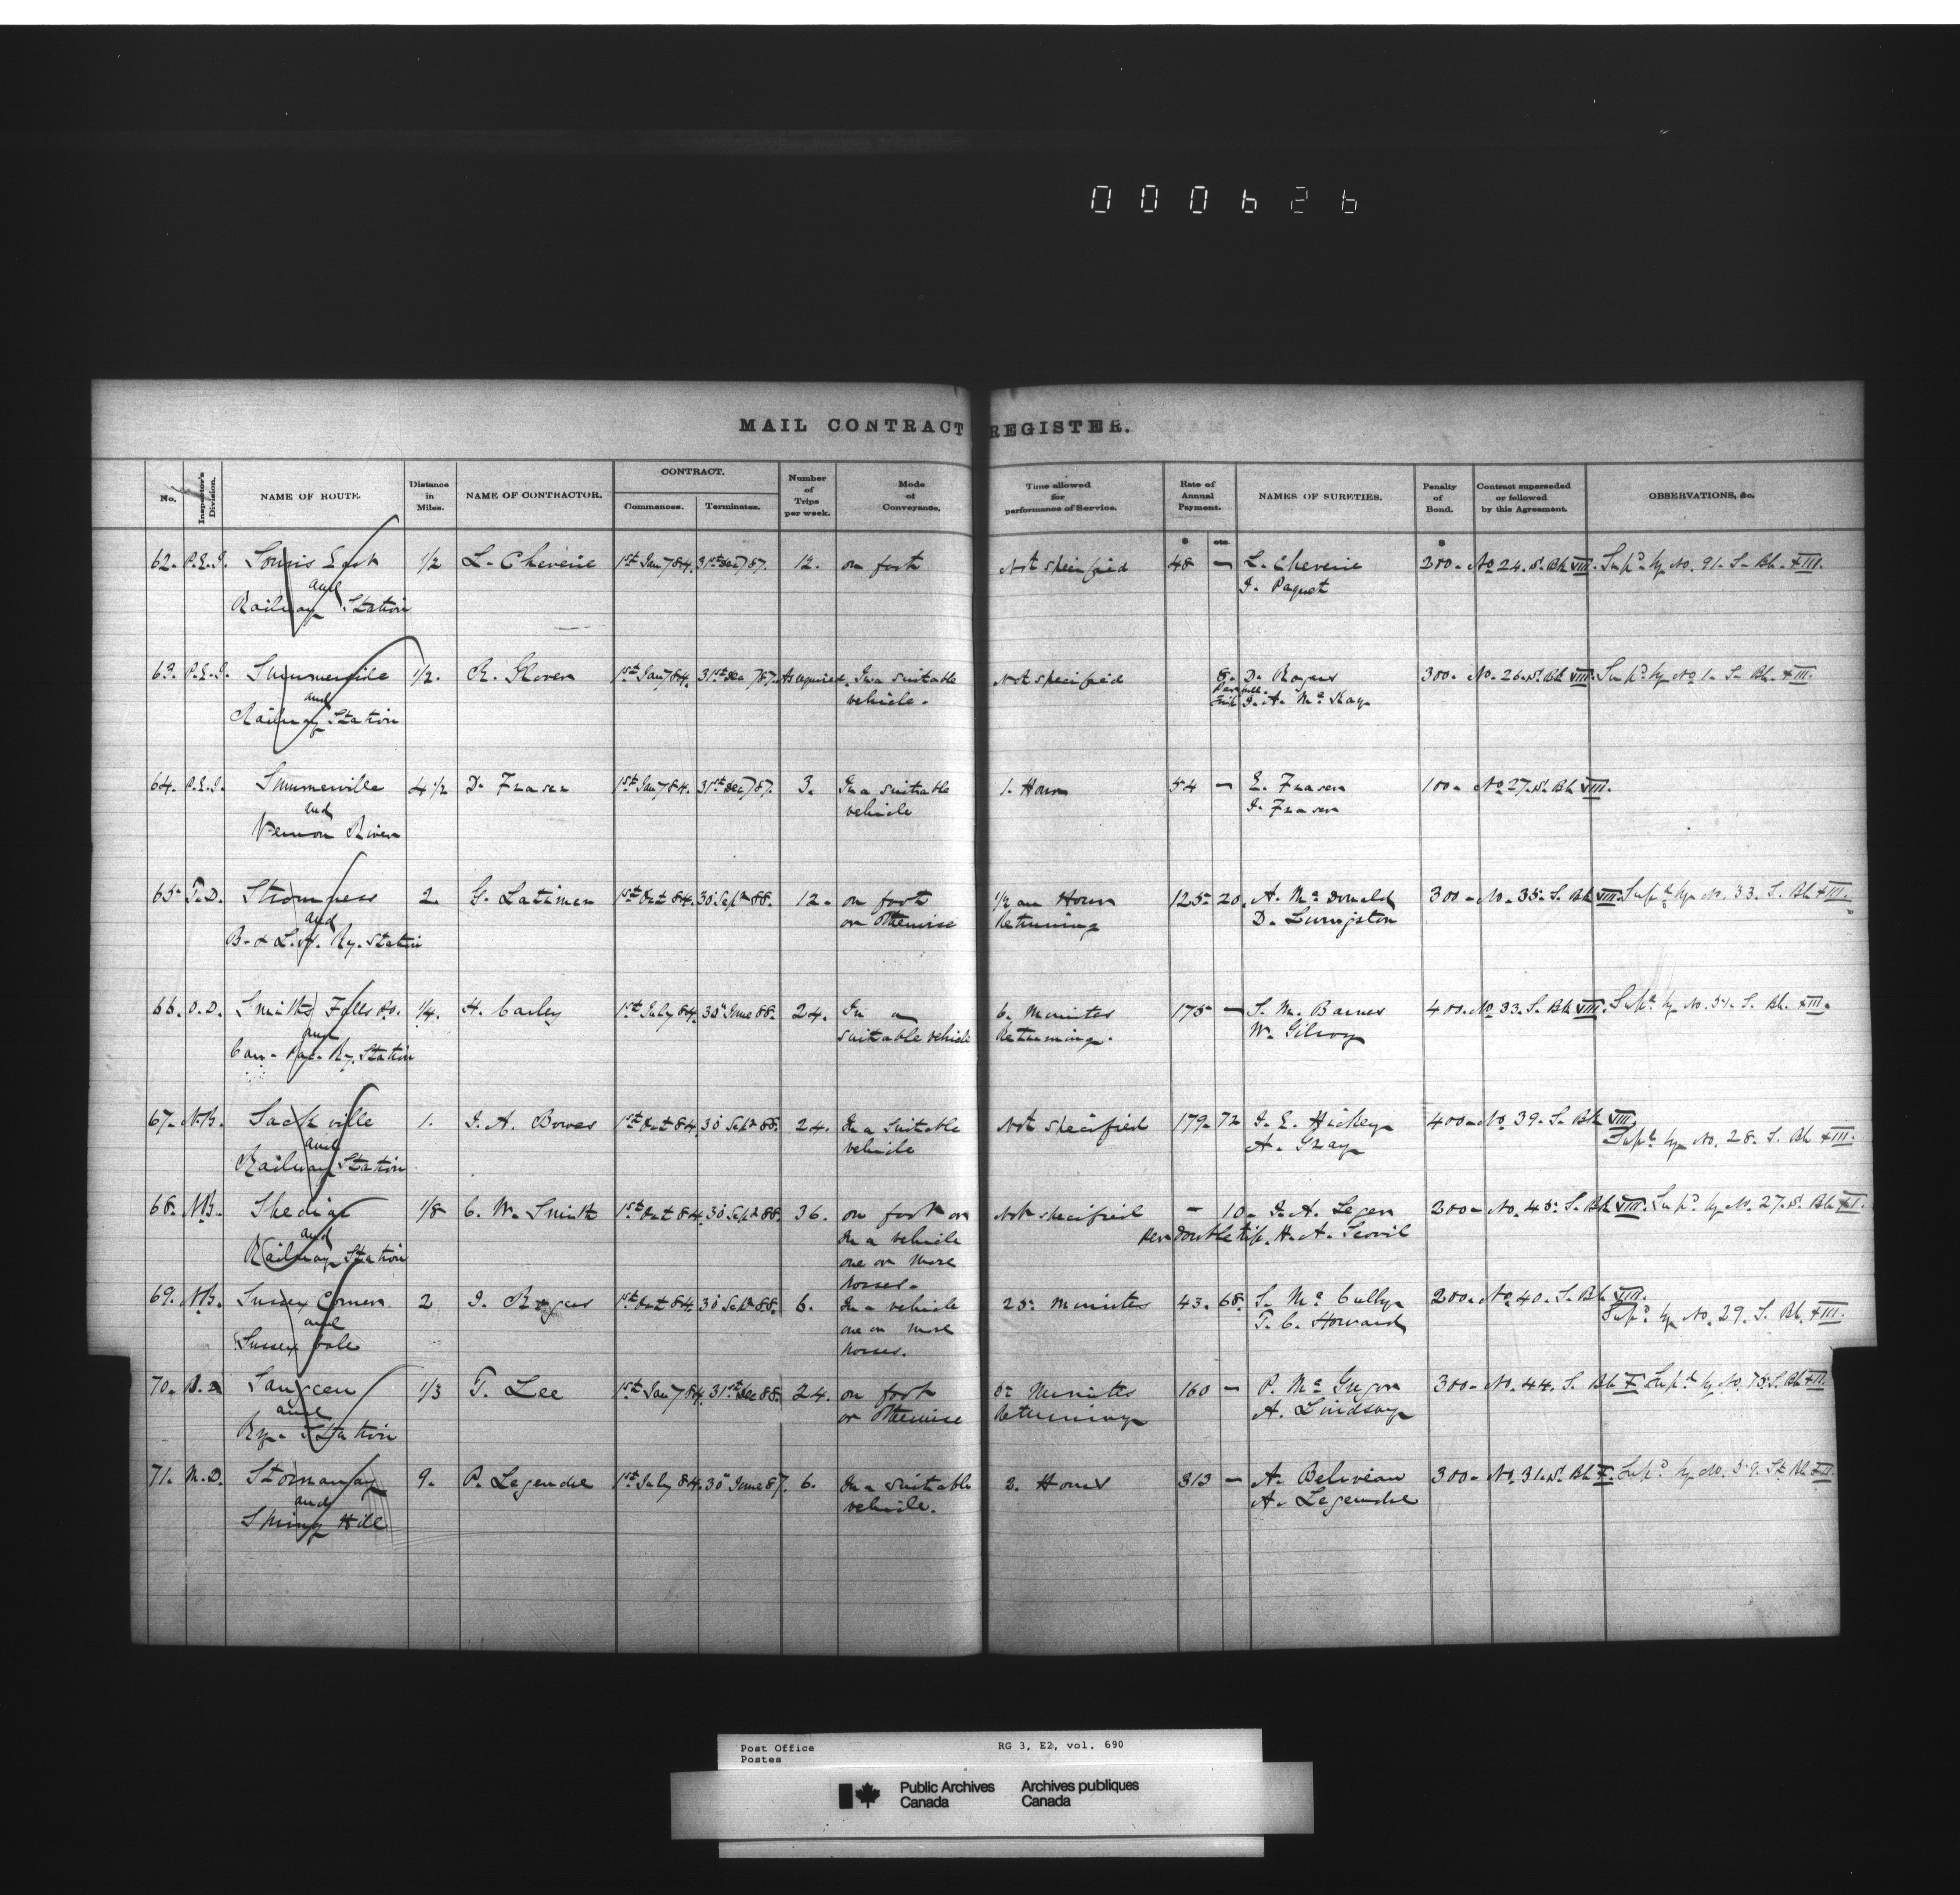 000626
MAIL CONTRACT REGISTER.
No. Inspector's Division. NAME OF ROUTE. Distance in Miles. NAME OF CONTRACTOR. CONTRACT. Commences. Terminates. Number of Trips per week. Mode of Conveyance. Time allowed for performance of Service. Rate of Annual Payment. NAMES OF SURETIES. Penalty of Bond. Contract superseded or followed by this Agreement. OBSERVATIONS, &c.
$ cts. $
62. P.E.I. Souris East 1/2 L. Cheverie 1st Jany 84. 31st Dec 87. 12. on foot Not specified 48 – L. Cheverie 200- No 24. S. Bk VIII. Supd by No. 91. S. Bk. XIII.
and J. Paquet
Railway Station
63. P.E.I. Summerside 1/2. R. Glover 1st Jany 84. 31st Dec 87. As required. In a suitable Not specified 8. D. Rogers 300- No. 26. S. Bk VIII. Supd by No 1. S. Bk. XIII.
and vehicle. J. A. McKay
Railway Station
64. P.E.I. Summerville 4 1/2 D. Fraser 1st Jany 84. 31st Dec 87. 3. In a suitable 1. Hour 54 – E. Fraser 100- No 27. S. Bk VIII.
and vehicle J. Fraser
Vernon River
65 T.D. Stromness 2. G. Latimer 1st Oct 84. 30 Sept 88. 12. on foot 1/2 an Hour 125 20. A. McDonald 300- No. 35. S. Bk VIII. Supd by No. 33. S. Bk XIII.
and or otherwise Returning D. Livingston
B. & L. H. Ry. Station
66. O.D. Smiths Falls P.O. 1/4. H. Carley 1st July 84. 30 June 88. 24. In a 6. Minutes 175 – S. M. Barnes 400. No 33. S. Bk VIII. Supd by No. 51. S. Bk. XIII.
and suitable vehicle Returning. W. Gilroy
Can. Pac. Ry. Station
67. N.B. Sackville 1. J. A. Bowes 1st Oct 84. 30 Sept 88. 24. In a suitable Not specified 179. 72 J. E. Hickey 400- No. 39. S. Bk VIII.
and vehicle A. Gray Supd by No. 28. S. Bk XIII.
Railway Station
68. N.B. Shediac 1/8 C. W. Smith 1st Oct 84. 30 Sept 88. 36. on foot or Not specified – 10. J. A. Leger 200- No. 45. S. Bk VIII. Supd by No. 27. S. Bk XI.
and In a vehicle Per double trip. H. A. Scovil
Railway Station one or more
horses.
69. N.B. Sussex Corner 2 J. Rogers 1st Oct 84. 30 Sept 88. 6. In a vehicle 25. Minutes 43. 68. S. McCully 200. No. 40. S. Bk VIII.
and one or more T. C. Howard Supd by No. 29. S. Bk. XIII.
Sussex Vale horses.
70. Saugeen 1/3 T. Lee 1st Jany 84. 31st Dec 88. 24. on foot Minutes 160 – P. McGregor 300- No. 44. S. Bk X Supd by No. 75. S. Bk XII.
and or otherwise Returning A. Lindsay
Ry. Station
71. M.D. Stornaway 9. P. Legendre 1st July 84. 30 June 87. 6. In a suitable 2. Hours 313 – A. Beliveau 300- No. 31. S. Bk X. Supd by No. 59. S. Bk XII.
and vehicle. A. Legendre
Spring Hill
Post Office RG 3, E2, vol. 690
Postes
Public Archives Archives publiques
Canada Canada